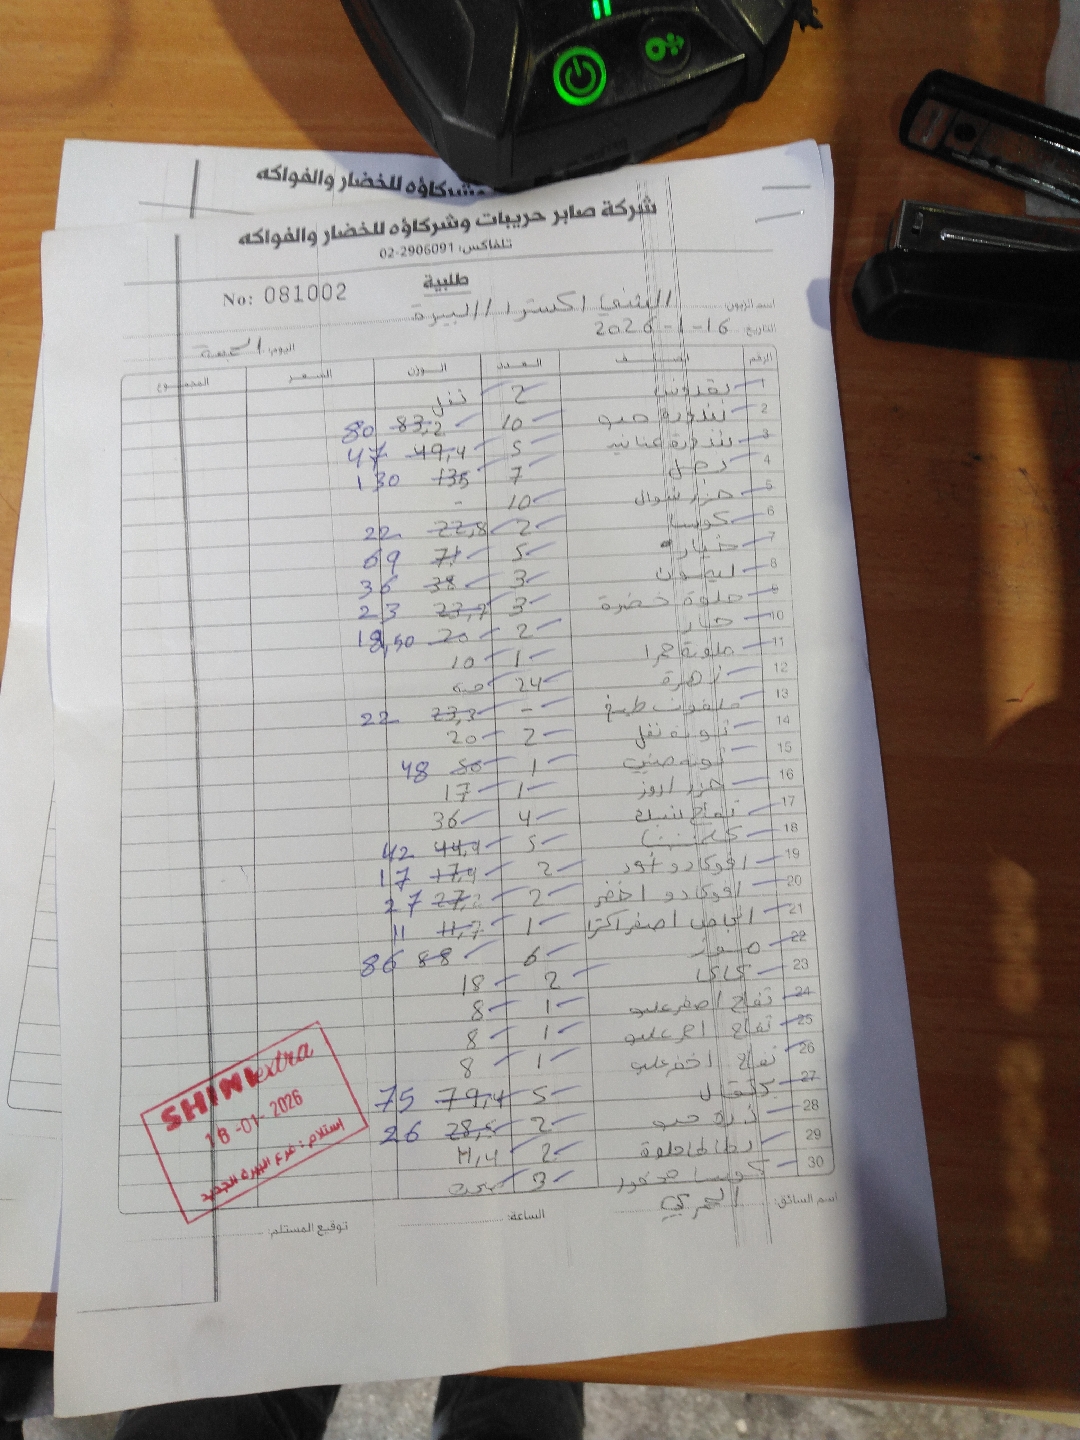 وشركاؤه للخضار والفواكه
شركة صابر حريبات وشركاؤه للخضار والفواكه
تلفاكس: 02-2906091
طلبية
No: 081002
اسم الزبون: الشني اكسترا / البيرة
التاريخ: 16-1-2026
اليوم: الجمعة
الرقم الصنف العدد الوزن السعر المجموع
1 بقدونس 2 نفل
2 بندورة حبو 10 83,2 80
3 بندورة عناقيد 5 49,4 47
4 بصل 7 135 130
5 جزر شوال 10 -
6 كوسا 2 22,8 22
7 خيار 5 71 69
8 ليمون 3 38 36
9 حلوة خضرة 3 23,7 23
10 خيار 2 20 18,50
11 ملونة حمرا 1 10
12 زهرة 24 حبة
13 ملفوف طبيخ - 23,3 22
14 ثومة نفل 2 20
15 ثومة صيني 1 50 48
16 جزر اروز 1 17
17 تفاح بينك 4 36
18 كلمنتينا 5 44,4 42
19 افوكادو اسود 2 17,9 17
20 افوكادو اخضر 2 27,2 27
21 اجاص اصفر اكسترا 1 11,7 11
22 موز 6 88 86
23 كاكا 2 18
24 تفاح اصفر علبو 1 8
25 تفاح احمر علبو 1 8
26 تفاح اخضر علبو 1 8
27 برتقال 5 79,4 75
28 ذرة حبو 2 28,5 26
29 بطاطا حلوة 2 11,4
30 كوسا محفور 3
SHINI extra
18-01-2026
استلام: فرع البيرة الجديد
اسم السائق: العمري الساعة: توقيع المستلم: